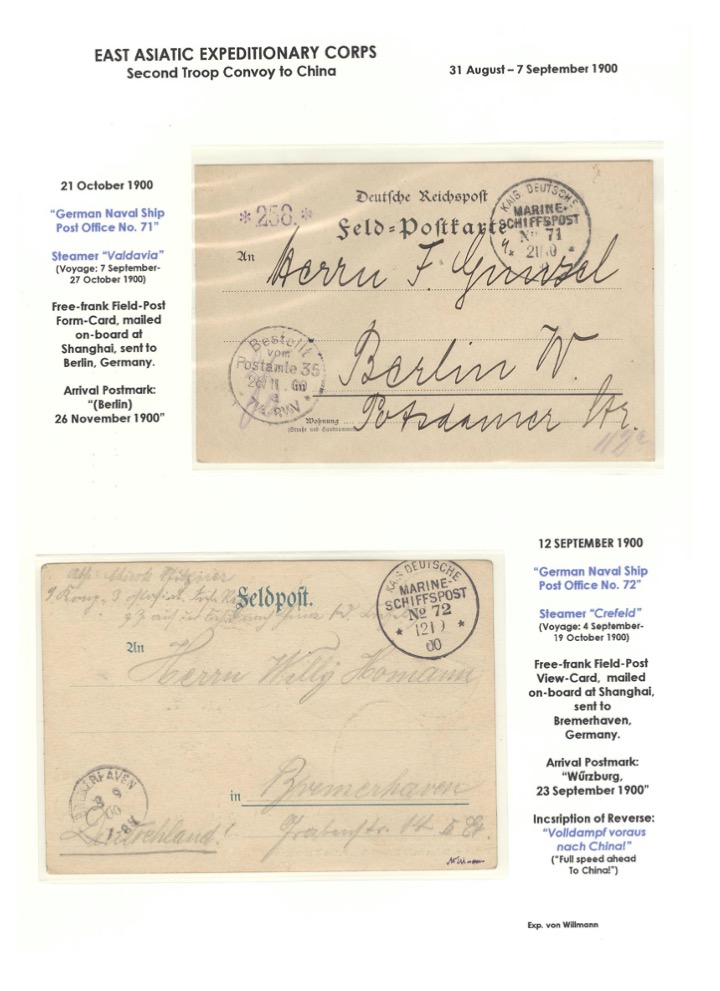 EAST ASIATIC EXPEDITIONARY CORPS
Second Troop Convoy to China
31 August – 7 September 1900
21 October 1900
"German Naval Ship
Post Office No. 71"
Steamer "Valdavia"
(Voyage: 7 September-
27 October 1900)
Free-frank Field-Post
Form-Card, mailed
on-board at
Shanghai, sent to
Berlin, Germany.
Arrival Postmark:
"(Berlin)
26 November 1900"
Deutsche Reichspost
Feld-Postkarte
*258.*
KAIS. DEUTSCHE
MARINE-
SCHIFFSPOST
No 71
An
Herrn F.
Berlin W.
Potsdamer Str.
112a
Wohnung
(Straße und Hausnummer)
Bestellt
vom
Postamte 35
26 11. 00
12 SEPTEMBER 1900
"German Naval Ship
Post Office No. 72"
Steamer "Crefeld"
(Voyage: 4 September-
19 October 1900)
Free-frank Field-Post
View-Card, mailed
on-board at Shanghai,
sent to
Bremerhaven,
Germany.
Arrival Postmark:
"Wűrzburg,
23 September 1900"
Incsription of Reverse:
"Volldampf voraus
nach China!"
("Full speed ahead
To China!")
Feldpost.
KAIS. DEUTSCHE
MARINE-
SCHIFFSPOST
No 72
* 12 9 *
00
An
Herrn Willy Homann
in Bremerhaven
Deutschland!
Exp. von Willmann